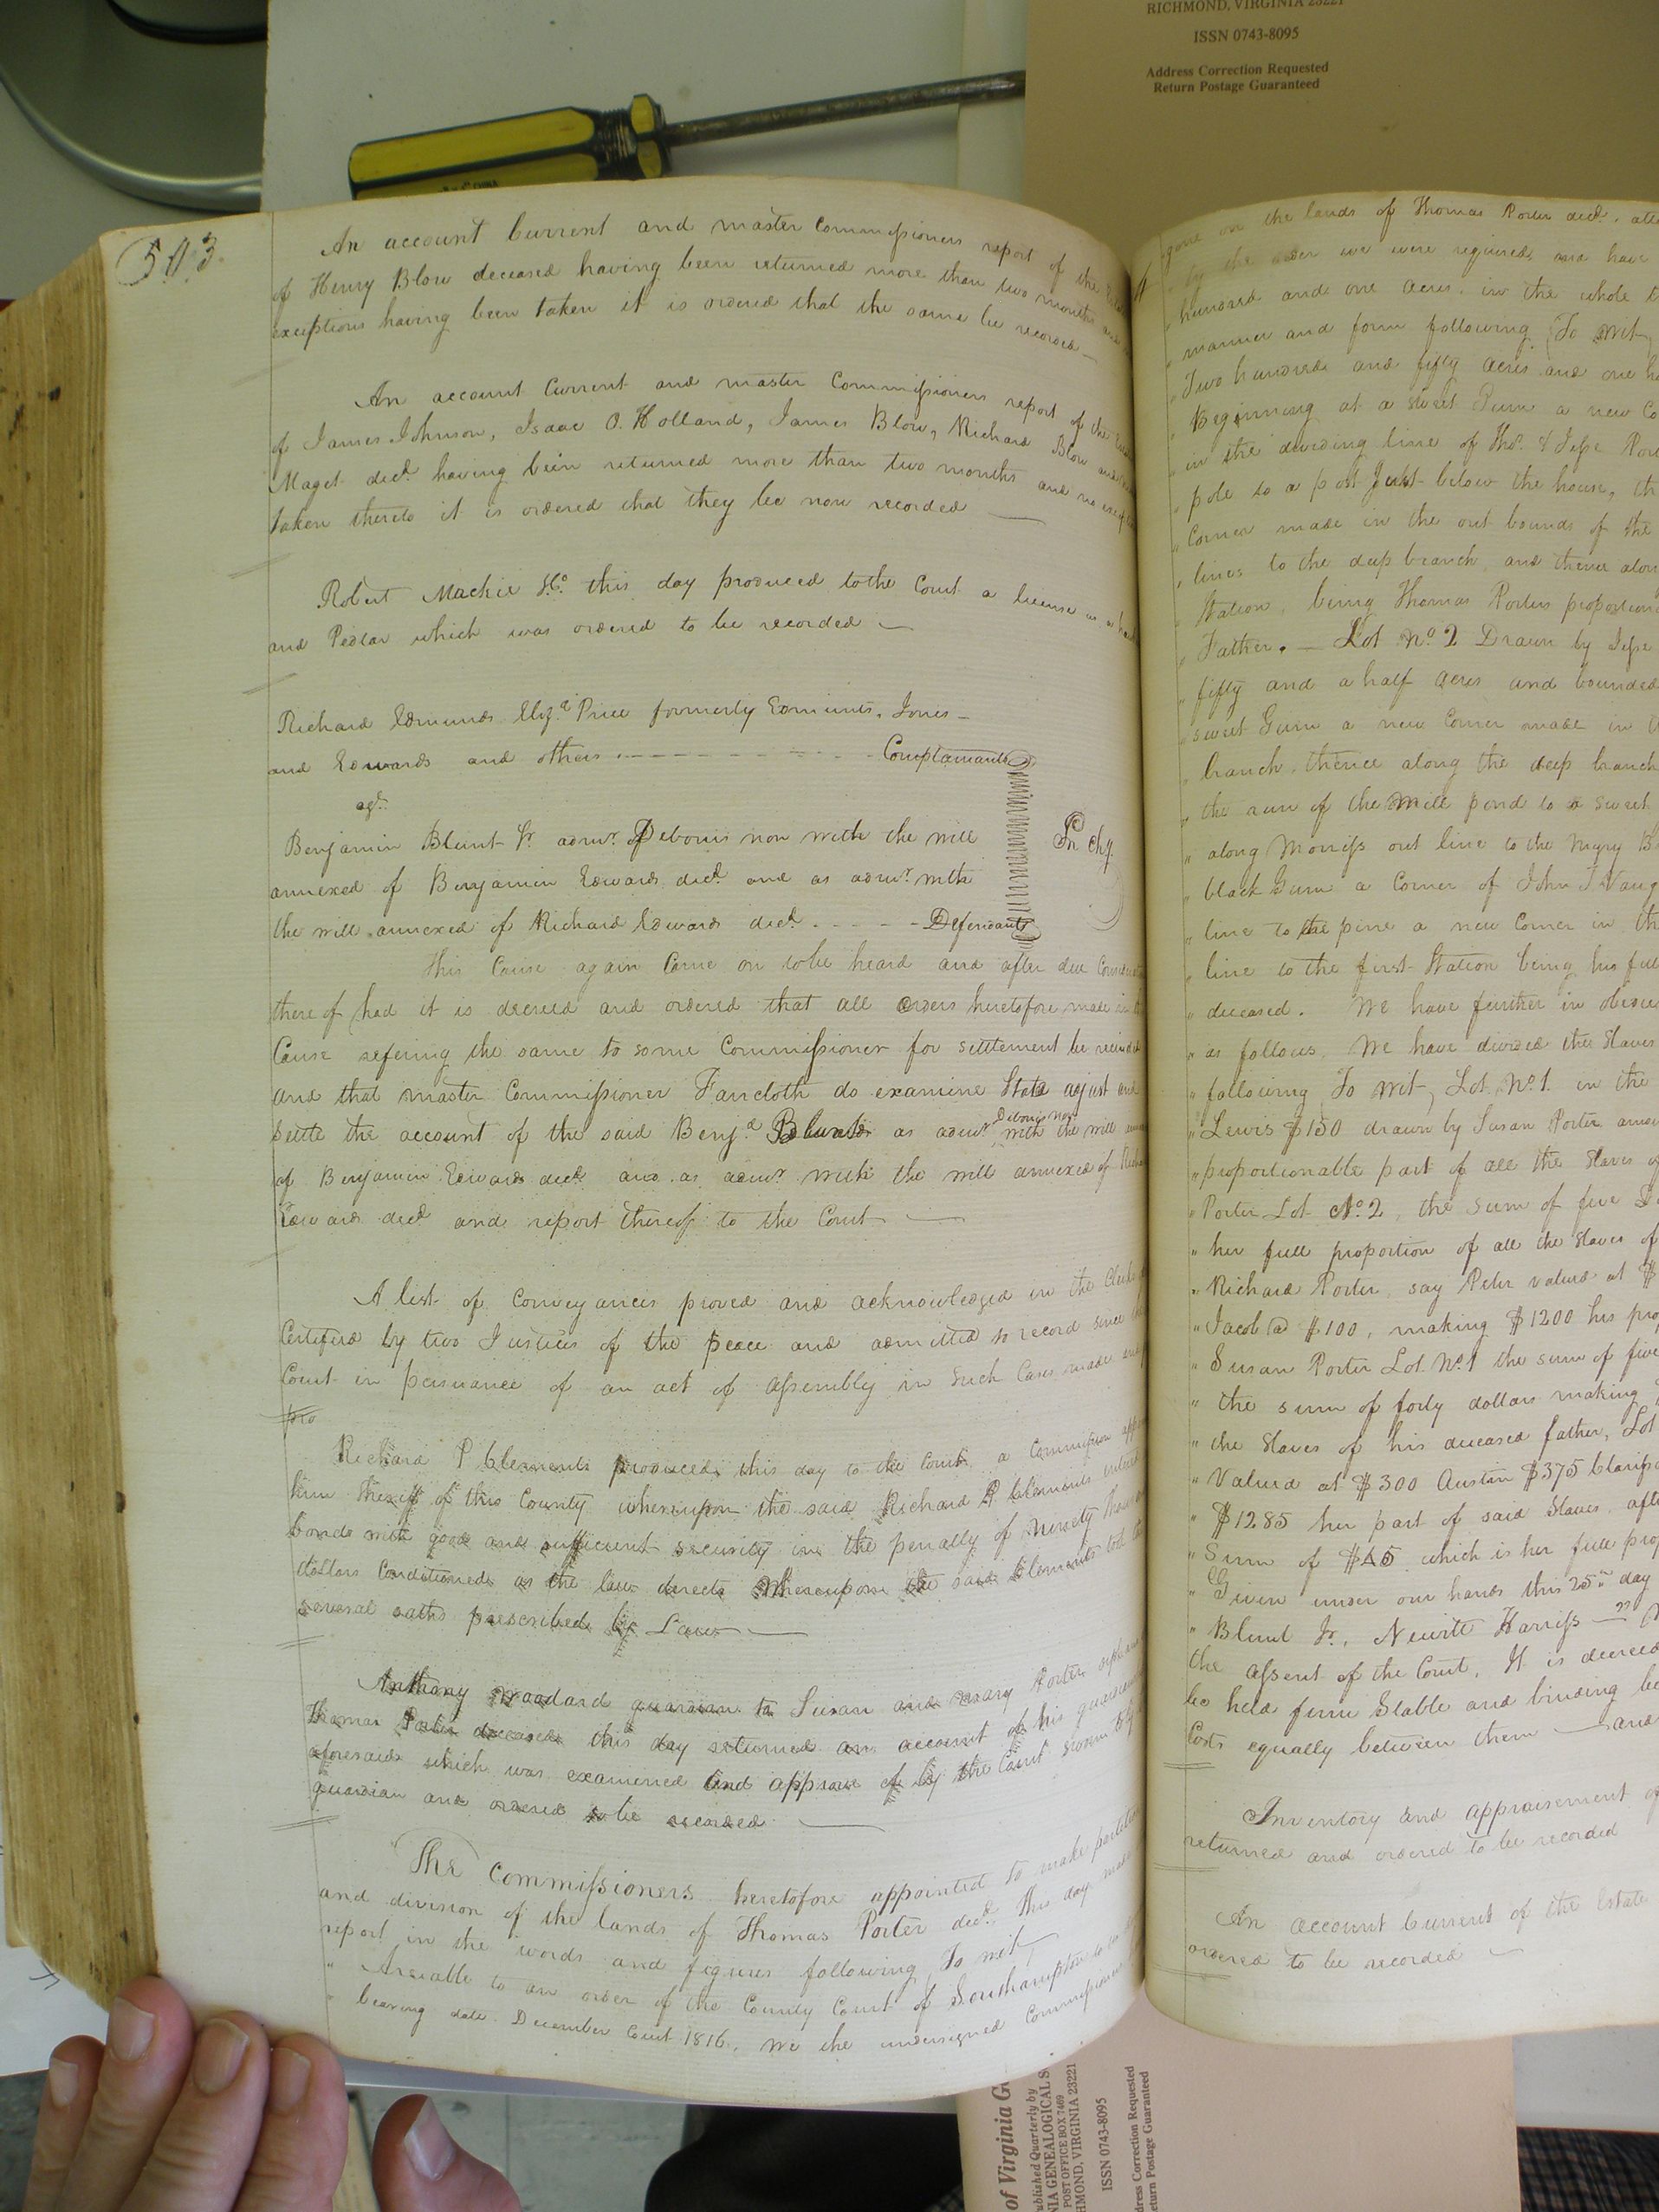 RICHMOND, VIRGINIA 23221
ISSN 0743-8095
Address Correction Requested
Return Postage Guaranteed
503.
An account Current and master Commissioners report of the
of Henry Blow deceased having been returned more than two months and
exceptions having been taken it is ordered that the same be recorded —
An account Current and master Commissioners report of the
of James Johnson, Isaac O. Holland, James Blow, Richard Blow and
Maget decd. having been returned more than two months and no
taken thereto it is ordered that they be now recorded —
Robert Mackie this day produced to the Court a license as a
and Pedlar which was ordered to be recorded —
Richard Edmunds Price formerly Edmunds, Jones
and Edwards and others - - - - Complainants
agt.
Benjamin Blunt Jr. admr. Debonis non with the will
annexed of Benjamin Edwards decd. and as admr. with
the will annexed of Richard Edwards decd. - - - - Defendants
In Chy.
This Cause again Came on to be heard and after due
thereof had it is decreed and ordered that all orders heretofore made in
Cause refering the same to some Commissioner for settlement be
and that master Commissioner Faircloth do examine State adjust and
settle the account of the said Benj. Blunt as admr. Debonis non with the will
of Benjamin Edwards decd. and as admr. with the will annexed of
Edwards decd. and report thereof to the Court —
A list of Conveyances proved and acknowledged in the
Certified by two Justices of the peace and admitted to record since
Court in persuance of an act of Assembly in such Cases made
pro
Richard P Clements produced this day to the Court a Commission
him Sheriff of this County whereupon the said Richard P. Clements
bond with good and sufficient security in the penalty of Ninety
dollars Conditioned as the law directs Whereupon the said Clements took the
several oaths prescribed by Law —
Anthony Woodard guardian to Susan and Mary Porter
Thomas Porter deceased this day returned an account of his
aforesaid which was examined and approved of by the Court sworn to by
guardian and ordered to be recorded —
The Commissioners heretofore appointed to make partition
and division of the lands of Thomas Porter decd. this day made
report in the words and figures following, To wit,
" Areeable to an order of the County Court of Southampton to
" bearing date December Court 1816. We the undersigned Commissioners
gone on the lands of Thomas Porter decd.
" by the order we were required, and have
" hundred and one acres. in the whole
" manner and form following, To wit
" Two hundred and fifty acres and one
" Beginning at a sweet Gum a new
" in the dividing line of Thos. & Jesse
" pole to a post Just below the house,
" Corner made in the out bounds of the
" lines to the deep branch and thence along
" Station, being Thomas Porters
" Father. — Lot No. 2 Drawn by Jesse
" fifty and a half acres and bounded
" sweet Gum a new Corner made in
" branch, thence along the deep branch
" the run of the Mill pond to a sweet
" along Morriss out line to the
" black Gum a Corner of John T Vaug
" line to the pine a new Corner in the
" line to the first Station being his full
" deceased. We have further in
" as follows. We have divided the Slaves
" following To wit, Lot No. 1. in the
" Lewis $150 drawn by Susan Porter,
" proportionable part of all the Slaves
" Porter Lot No. 2, the sum of five
" her full proportion of all the Slaves of
" Richard Porter, say Peter valued at $
" Jacob @ $100, making $1200 his
" Susan Porter Lot No. 1 the sum of five
" the sum of forty dollars making
" the Slaves of his deceased father, Lot
" Valued at $300 Austin $375
" $1285 her part of said Slaves
" Sum of $45 which is her full
" Given under our hands this 25th day
" Blunt Jr, Newitt Harriss —"
the assent of the Court, It is decreed
be held firm Stable and binding
Costs equally between them — and
Inventory and appraisement of
returned and ordered to be recorded
An account Current of the Estate
ordered to be recorded —
of Virginia
Published Quarterly by
GENEALOGICAL
POST OFFICE BOX 7469
RICHMOND, VIRGINIA 23221
ISSN 0743-8095
Address Correction Requested
Return Postage Guaranteed